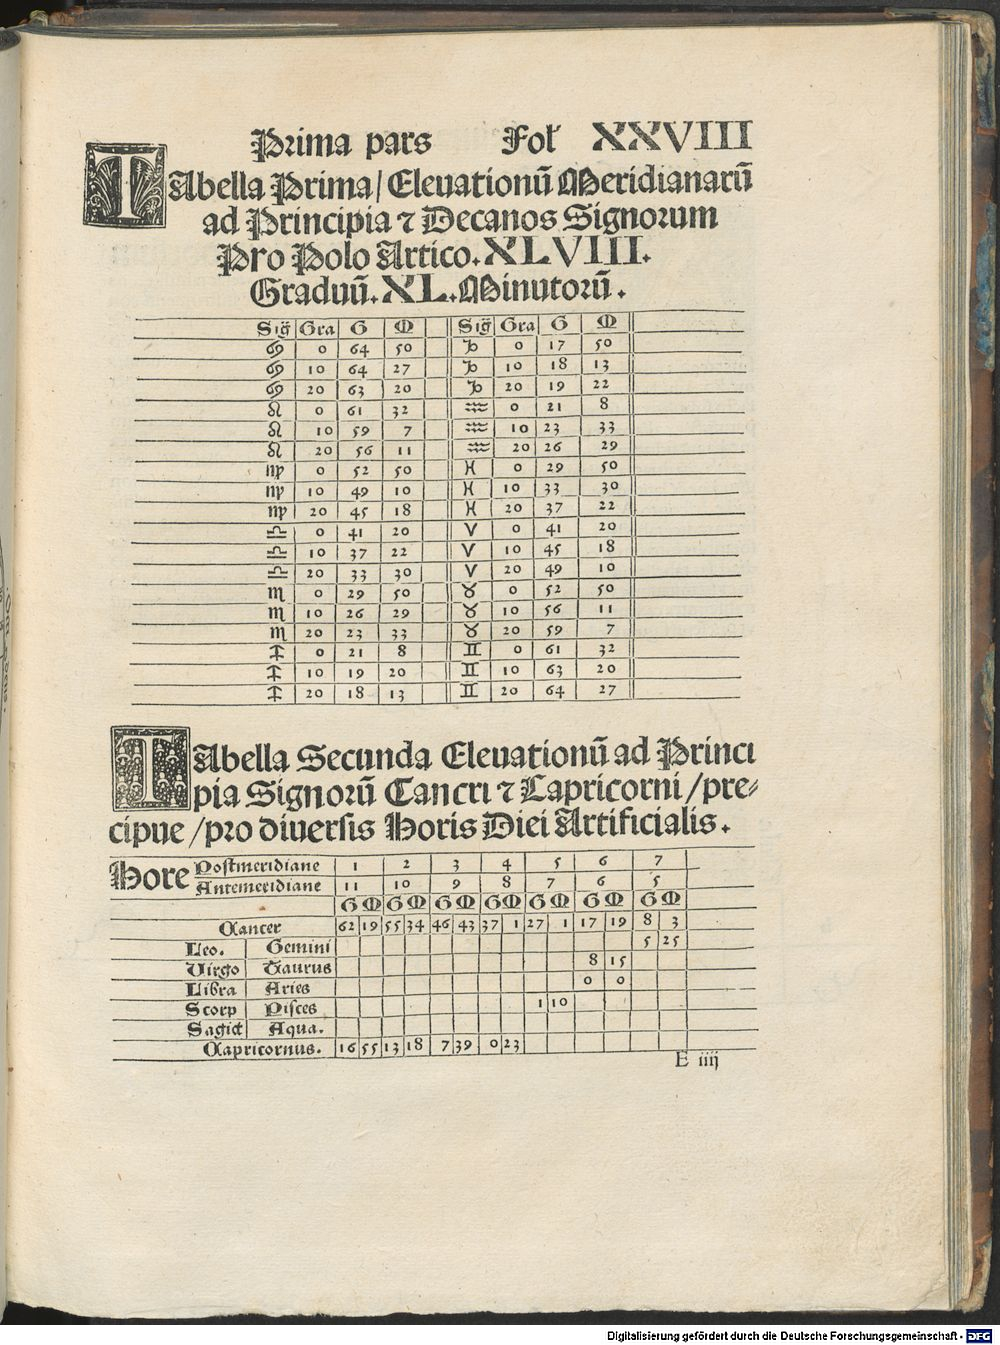 Prima pars Fol XXVIII
TAbella Prima/ Eleuationū Meridianarū
ad Principia ⁊ Decanos Signorum
Pro Polo Artico. XLVIII.
Graduū. XL. Minutorū.
Sig̃ Gra G M Sig̃ Gra G M
♋ 0 64 50 ♑ 0 17 50
♋ 10 64 27 ♑ 10 18 13
♋ 20 63 20 ♑ 20 19 22
♌ 0 61 32 ♒ 0 21 8
♌ 10 59 7 ♒ 10 23 33
♌ 20 56 11 ♒ 20 26 29
♍ 0 52 50 ♓ 0 29 50
♍ 10 49 10 ♓ 10 33 30
♍ 20 45 18 ♓ 20 37 22
♎ 0 41 20 ♈ 0 41 20
♎ 10 37 22 ♈ 10 45 18
♎ 20 33 30 ♈ 20 49 10
♏ 0 29 50 ♉ 0 52 50
♏ 10 26 29 ♉ 10 56 11
♏ 20 23 33 ♉ 20 59 7
♐ 0 21 8 ♊ 0 61 32
♐ 10 19 20 ♊ 10 63 20
♐ 20 18 13 ♊ 20 64 27
TAbella Secunda Eleuationū ad Princi
pia Signorū Cancri ⁊ Capricorni/pre⸗
cipue/pro diuersis Horis Diei Artificialis.
Hore Postmeridiane 1 2 3 4 5 6 7
Antemeridiane 11 10 9 8 7 6 5
G M G M G M G M G M G M
Cancer 62 19 55 34 46 43 37 1 27 1 17 19 8 3
Leo. Gemini 5 25
Virgo Taurus 8 15
Libra Aries 0 0
Scorp Pisces 1 10
Sagict Aqua.
Capricornus. 16 55 13 18 7 39 0 23
E iiij
Digitalisierung gefördert durch die Deutsche Forschungsgemeinschaft - DFG